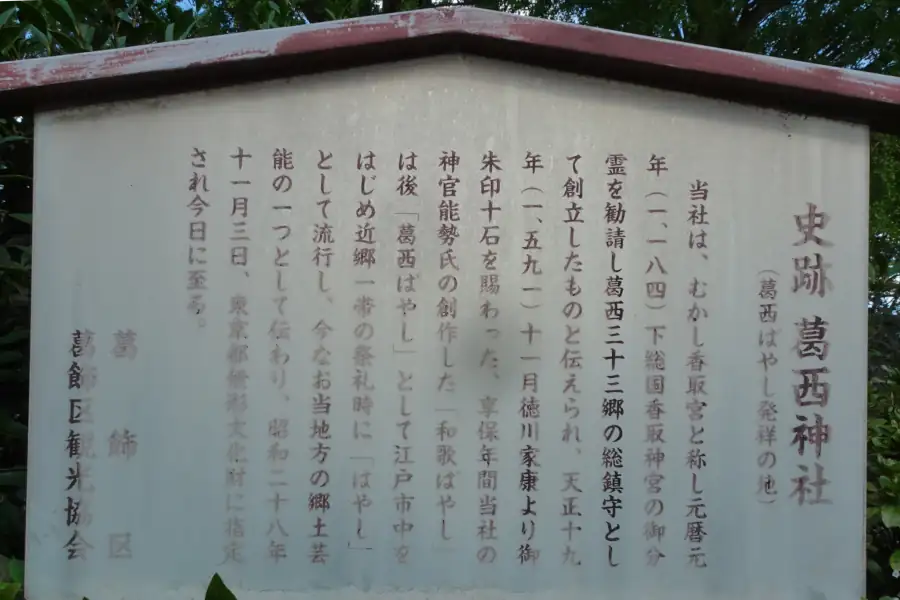 史跡 葛西神社
(葛西ばやし発祥の地)
当社は、むかし香取宮と称し元暦元
年(一、一八四)下総国香取神宮の御分
霊を勧請し葛西三十三郷の総鎮守とし
て創立したものと伝えられ、天正十九
年(一、五九一)十一月徳川家康より御
朱印十石を賜わった、享保年間当社の
神官能勢氏の創作した「和歌ばやし」
は後「葛西ばやし」として江戸市中を
はじめ近郷一帯の祭礼時に「はやし」
として流行し、今なお当地方の郷土芸
能の一つとして伝わり、昭和二十八年
十一月三日、東京都無形文化財に指定
され今日に至る。
葛飾区
葛飾区観光協会